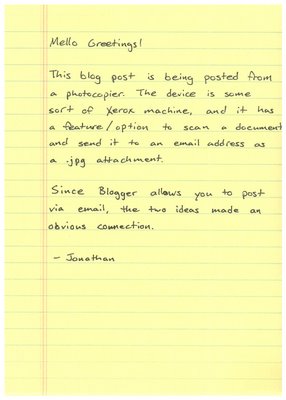 Mello Greetings!
This blog post is being posted from
a photocopier. The device is some
sort of Xerox machine, and it has
a feature/option to scan a document
and send it to an email address as
a .jpg attachment.
Since Blogger allows you to post
via email, the two ideas made an
obvious connection.
- Jonathan